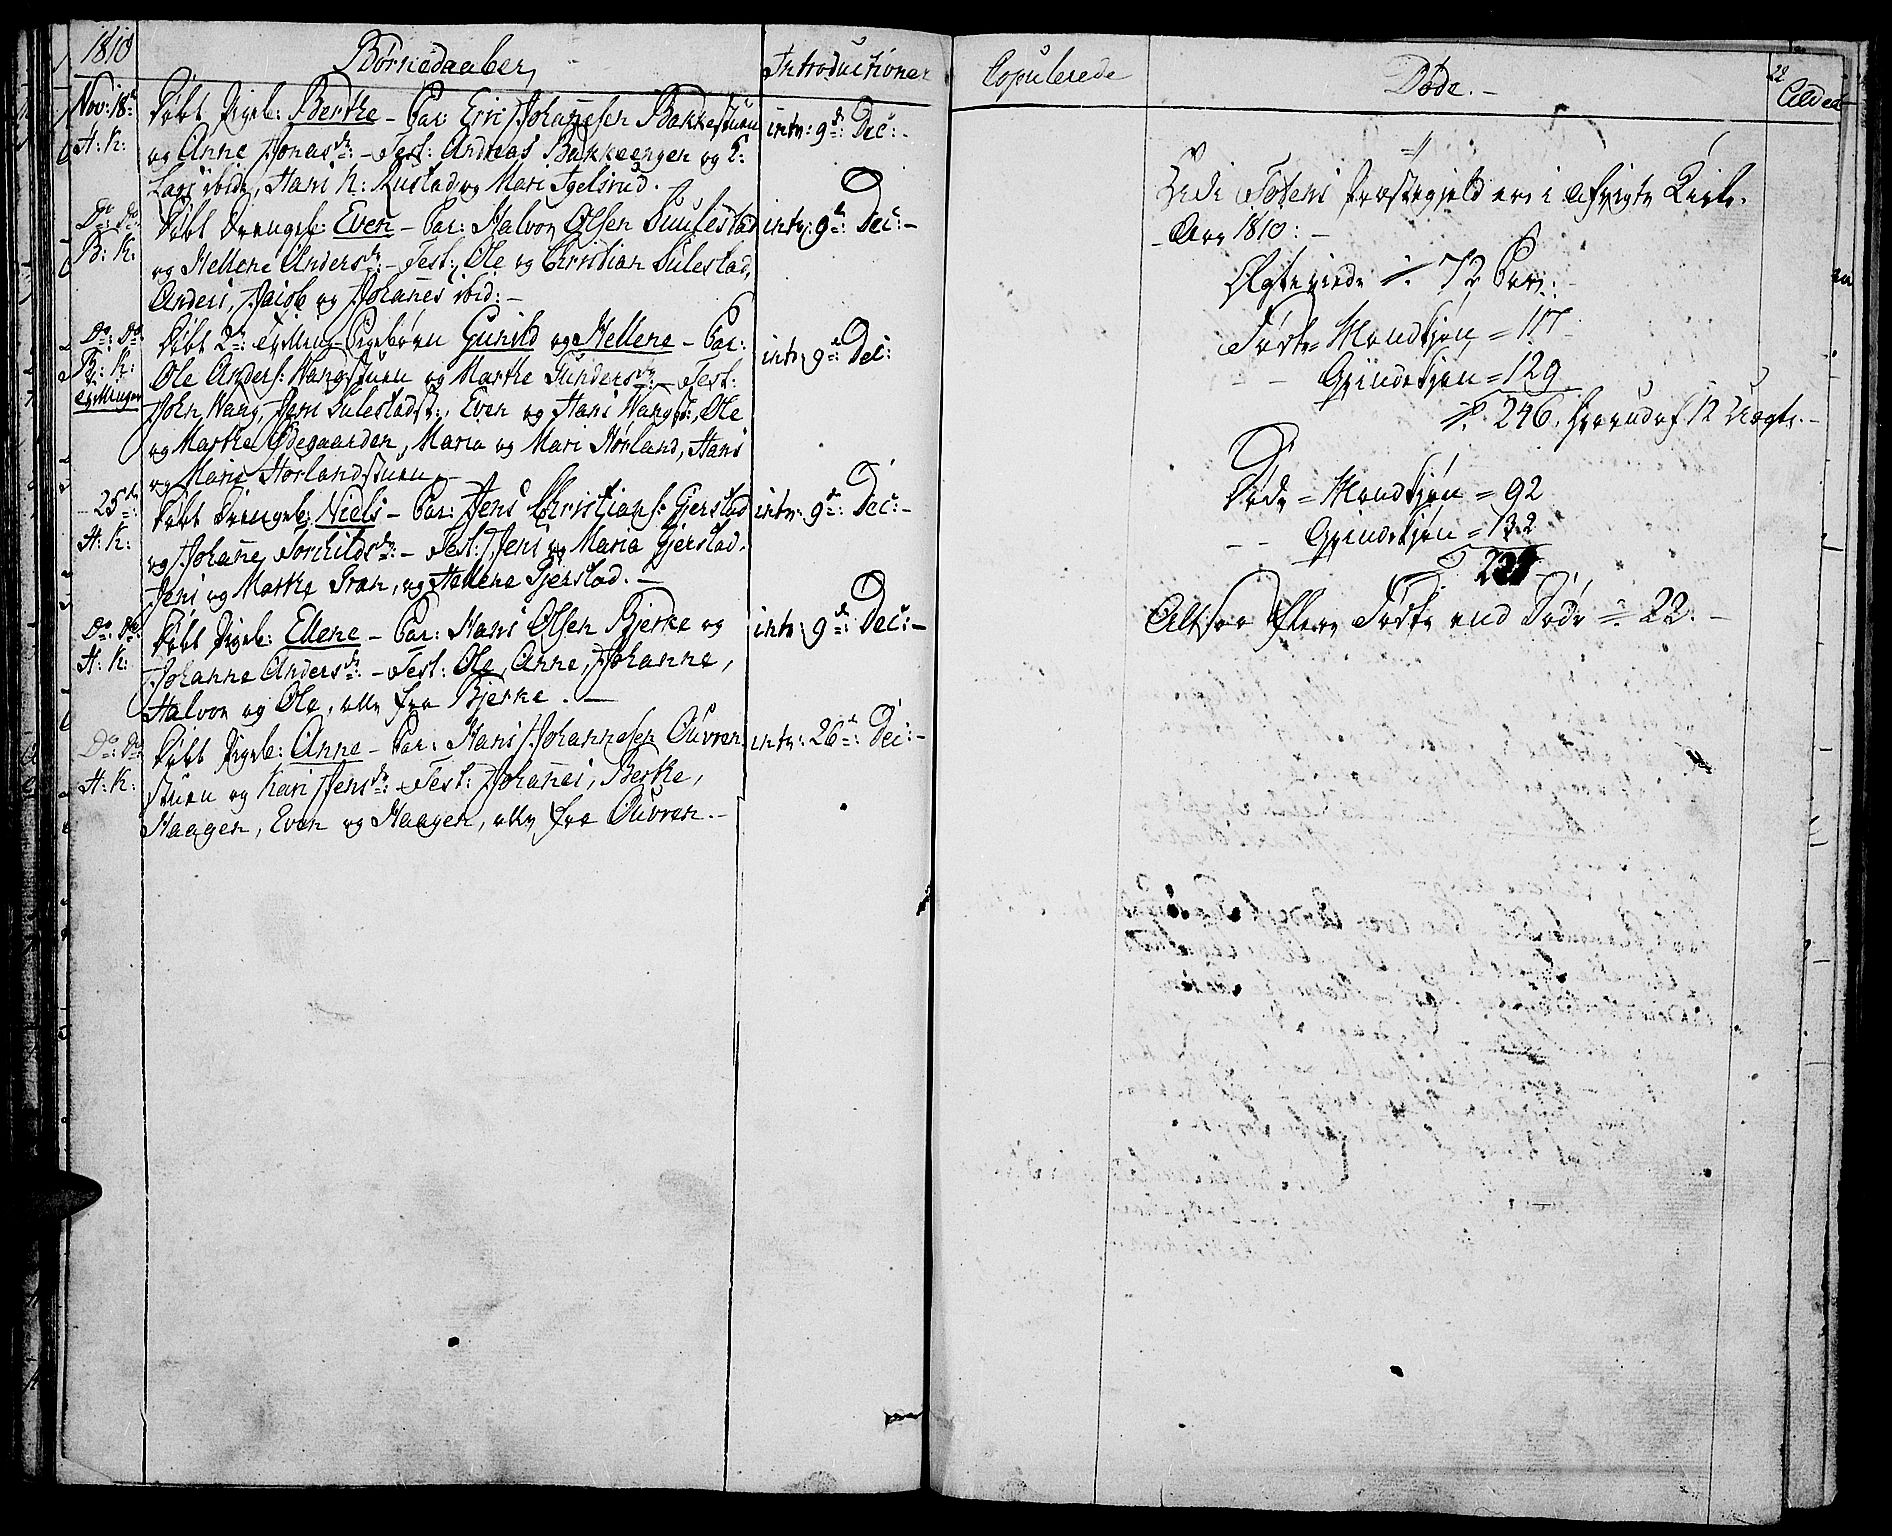 1810
Børnedaaber,
Introductioner
Nov: 18de
H: K:
Døbt Pigeb: Berthe – Par: Eric Johannesen Bakkestuen
og Anne Jonasdr: – Test: Andreas Bakkeengen og
Lars ibid:, Hans K: Rustad og Mari Igelsrud.
intr: 9de: Dec: –
Do: Do:
B: K:
Døbt Drengeb: Even – Par: Halvor Olsen Suulestad
og Hellene Andersdr: – Test: Ole og Christian Sulestad,
Anders, Jacob og Johannes ibid: –
intr: 9de: Dec: –
Do: Do:
B: K:
Tvillinger
Døbt 2de: Tvilling Pigebørn Gunild og Hellene – Par:
Ole Anders: Wangstuen og Marthe Gundersdr: – Test:
John Wang, Jens Sulestadst:, Even og Hans Wangst:, Ole
og Marthe Ødegaarden, Maria og Mari Hørland, Hans
og Marie Hørlandstuen –
intr: 9de: Dec:
– 25de:
H: K:
Døbt Drengeb: Niels – Par: Jens Christians: Gjerstad
og Johanne Torchildsdr: – Test: Jens og Maria Gjerstad.
Jens og Marthe Gran, og Hellene Gjerstad. –
intr: 9de: Dec: –
Do: Do:
H: K:
Døbt Pigeb: Ellene – Par: Hans Olsen Bjerke og
Johanne Andersdr: – Test: Ole, Anne, Johanne,
Halvor og Ole, alle fra Bjerke. –
intr: 9de: Dec: –
Do: Do:
H: K:
Døbt Pigeb: Anne – Par: Hans Johannesen Ouvren
stuen og Kari Jensdr: Test: Johanes, Berthe,
Haagen, Even og Haagen, alle fra Ouvren. –
intr: 26de: Dec: –
Copulerede
Døde. –
22
Alder
Udi Totens Præstegjeld ere i afvigte Kirke-
Aar 1810: –
Ægteviede = 72 Par:
Fødte Mandkjøn = 117
– – Qvindekjøn = 129
= 246. hvoraf 12 Uægte. –
Døde = Mandkjøn = 92
– – Qvindekjøn = 132
Altsaa flere Fødte end Døde = 22. –